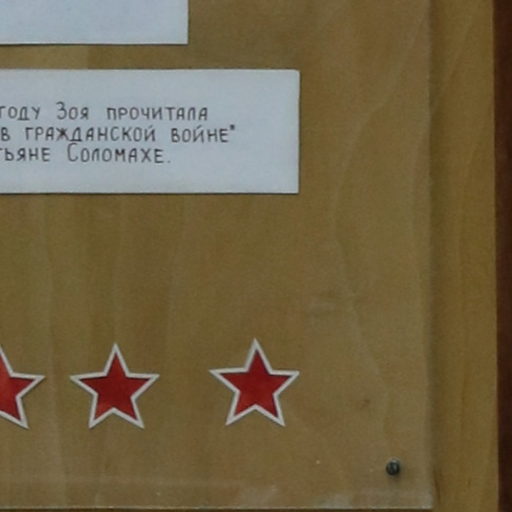 году Зоя прочитала
в гражданской войне"
тьяне Соломахе.